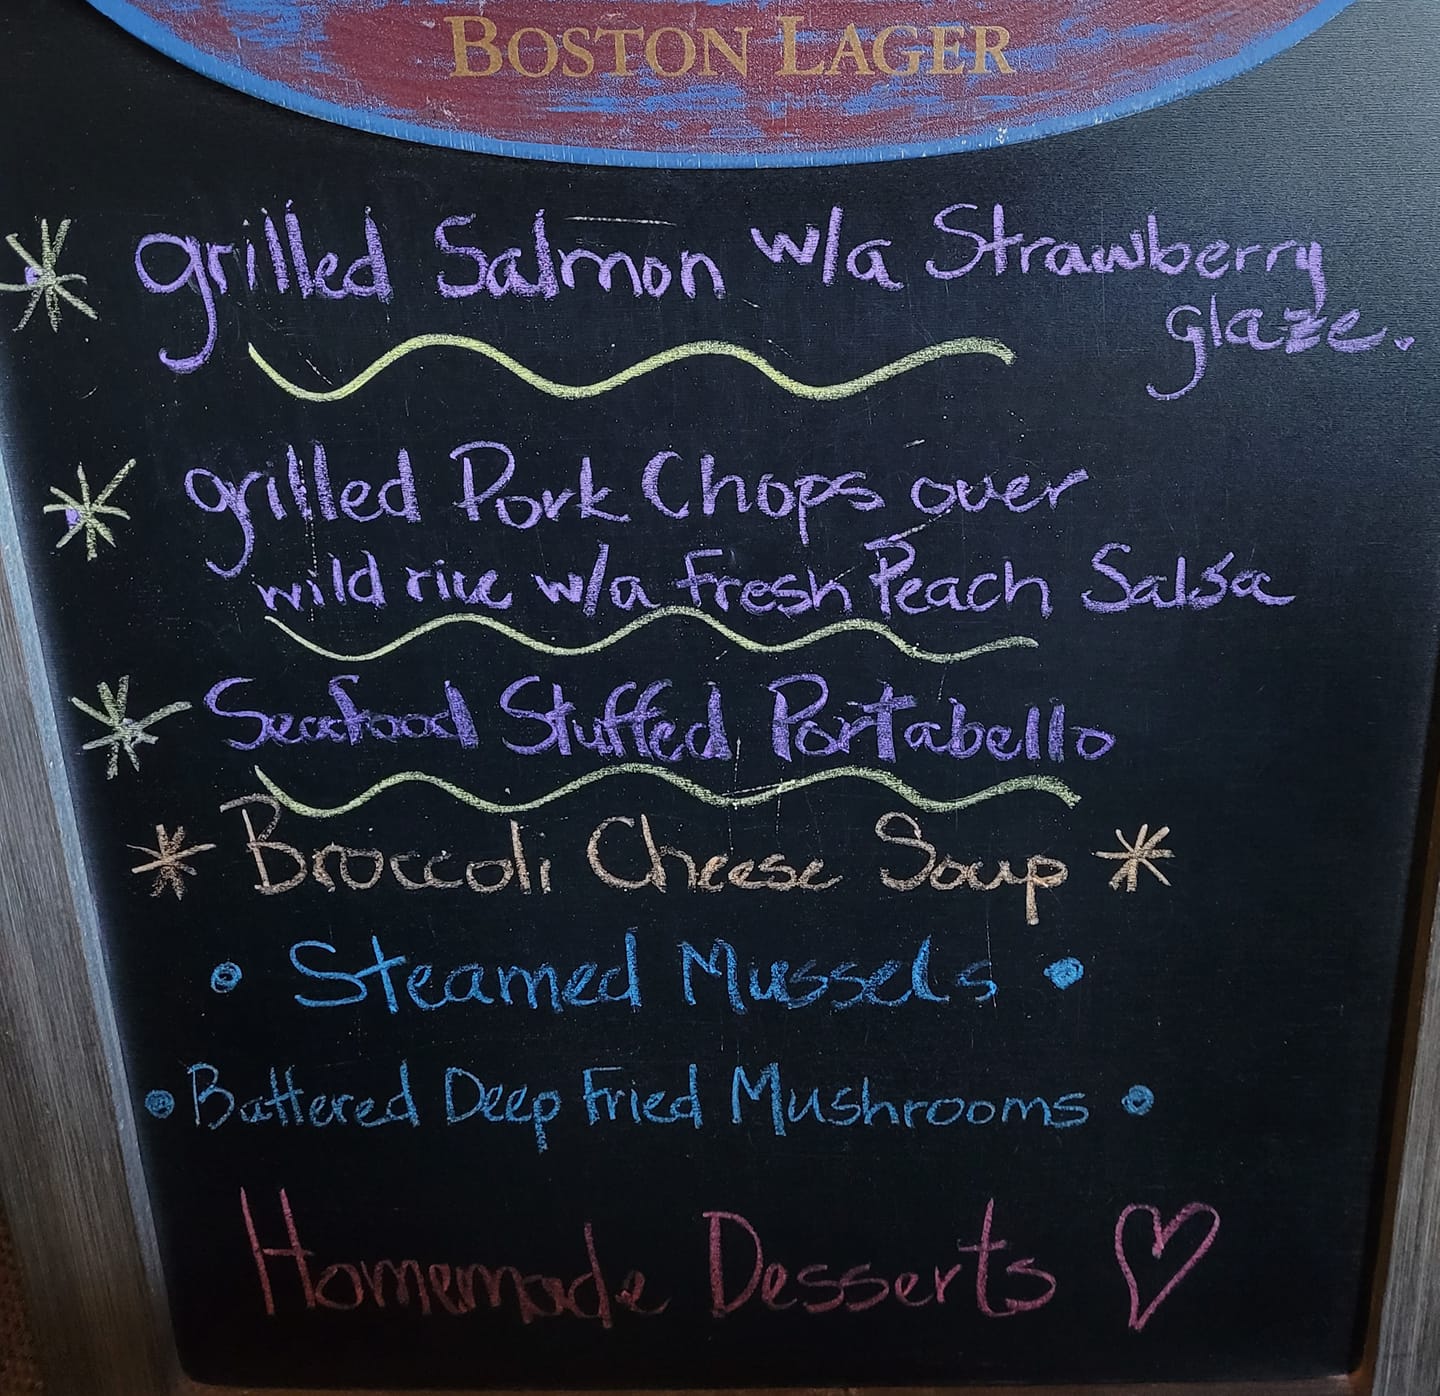 BOSTON LAGER
grilled Salmon w/a Strawberry
glaze.
grilled Pork Chops over
wild rice w/a Fresh Peach Salsa
Seafood Stuffed Portabello
Broccoli Cheese Soup
Steamed Mussels
Battered Deep Fried Mushrooms
Homemade Desserts